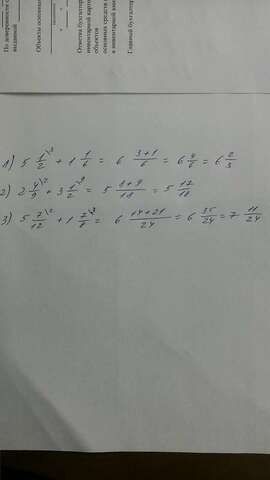 По доверенности
выданной
Объекты основных
Отметка бухгалтер
инвентарной карто
объектов
основных средств
в инвентарной
Главный бухгалтер
1) 5 1/2 \3 + 1 1/6 = 6 (3+1)/6 = 6 4/6 = 6 2/3
2) 2 4/9 \2 + 3 1/2 \9 = 5 (8+9)/18 = 5 17/18
3) 5 7/12 \2 + 1 7/8 \3 = 6 (14+21)/24 = 6 35/24 = 7 11/24